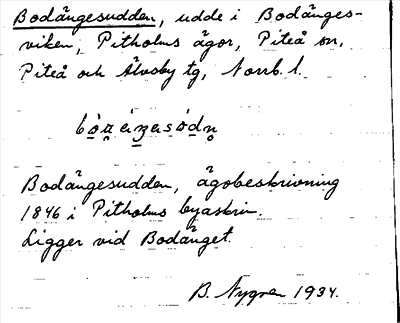 Bodängesudden, udde i Bodänges-
viken, Pitholms ägor, Piteå sn,
Piteå och Älvsby tg, Norrb. l.
Bodängesudden, ägobeskrivning
1846 i Pitholms byaskrin.
Ligger vid Bodänget.
B. Nygren 1934.